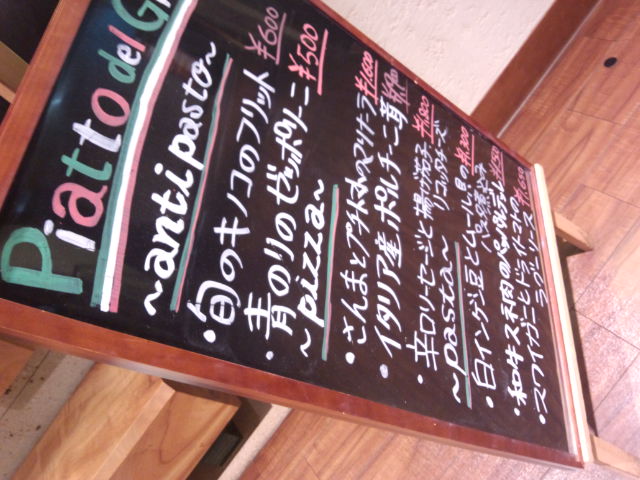 Piatto del Gi
~antipasto~
・旬のキノコのフリット ¥600
・青のりのゼッポリーニ ¥500
~pizza~
・さんまとプチトマトのマリナーラ ¥1,600
・イタリア産ポルチーニ茸
・辛口ソーセージと揚げ茄子 ¥1,800
リコッタチーズ
~pasta~
・白インゲン豆とムール貝の ¥1,300
・和牛スネ肉のパッパルデッレ
・スワイガニとドライトマトの
ラグーソース